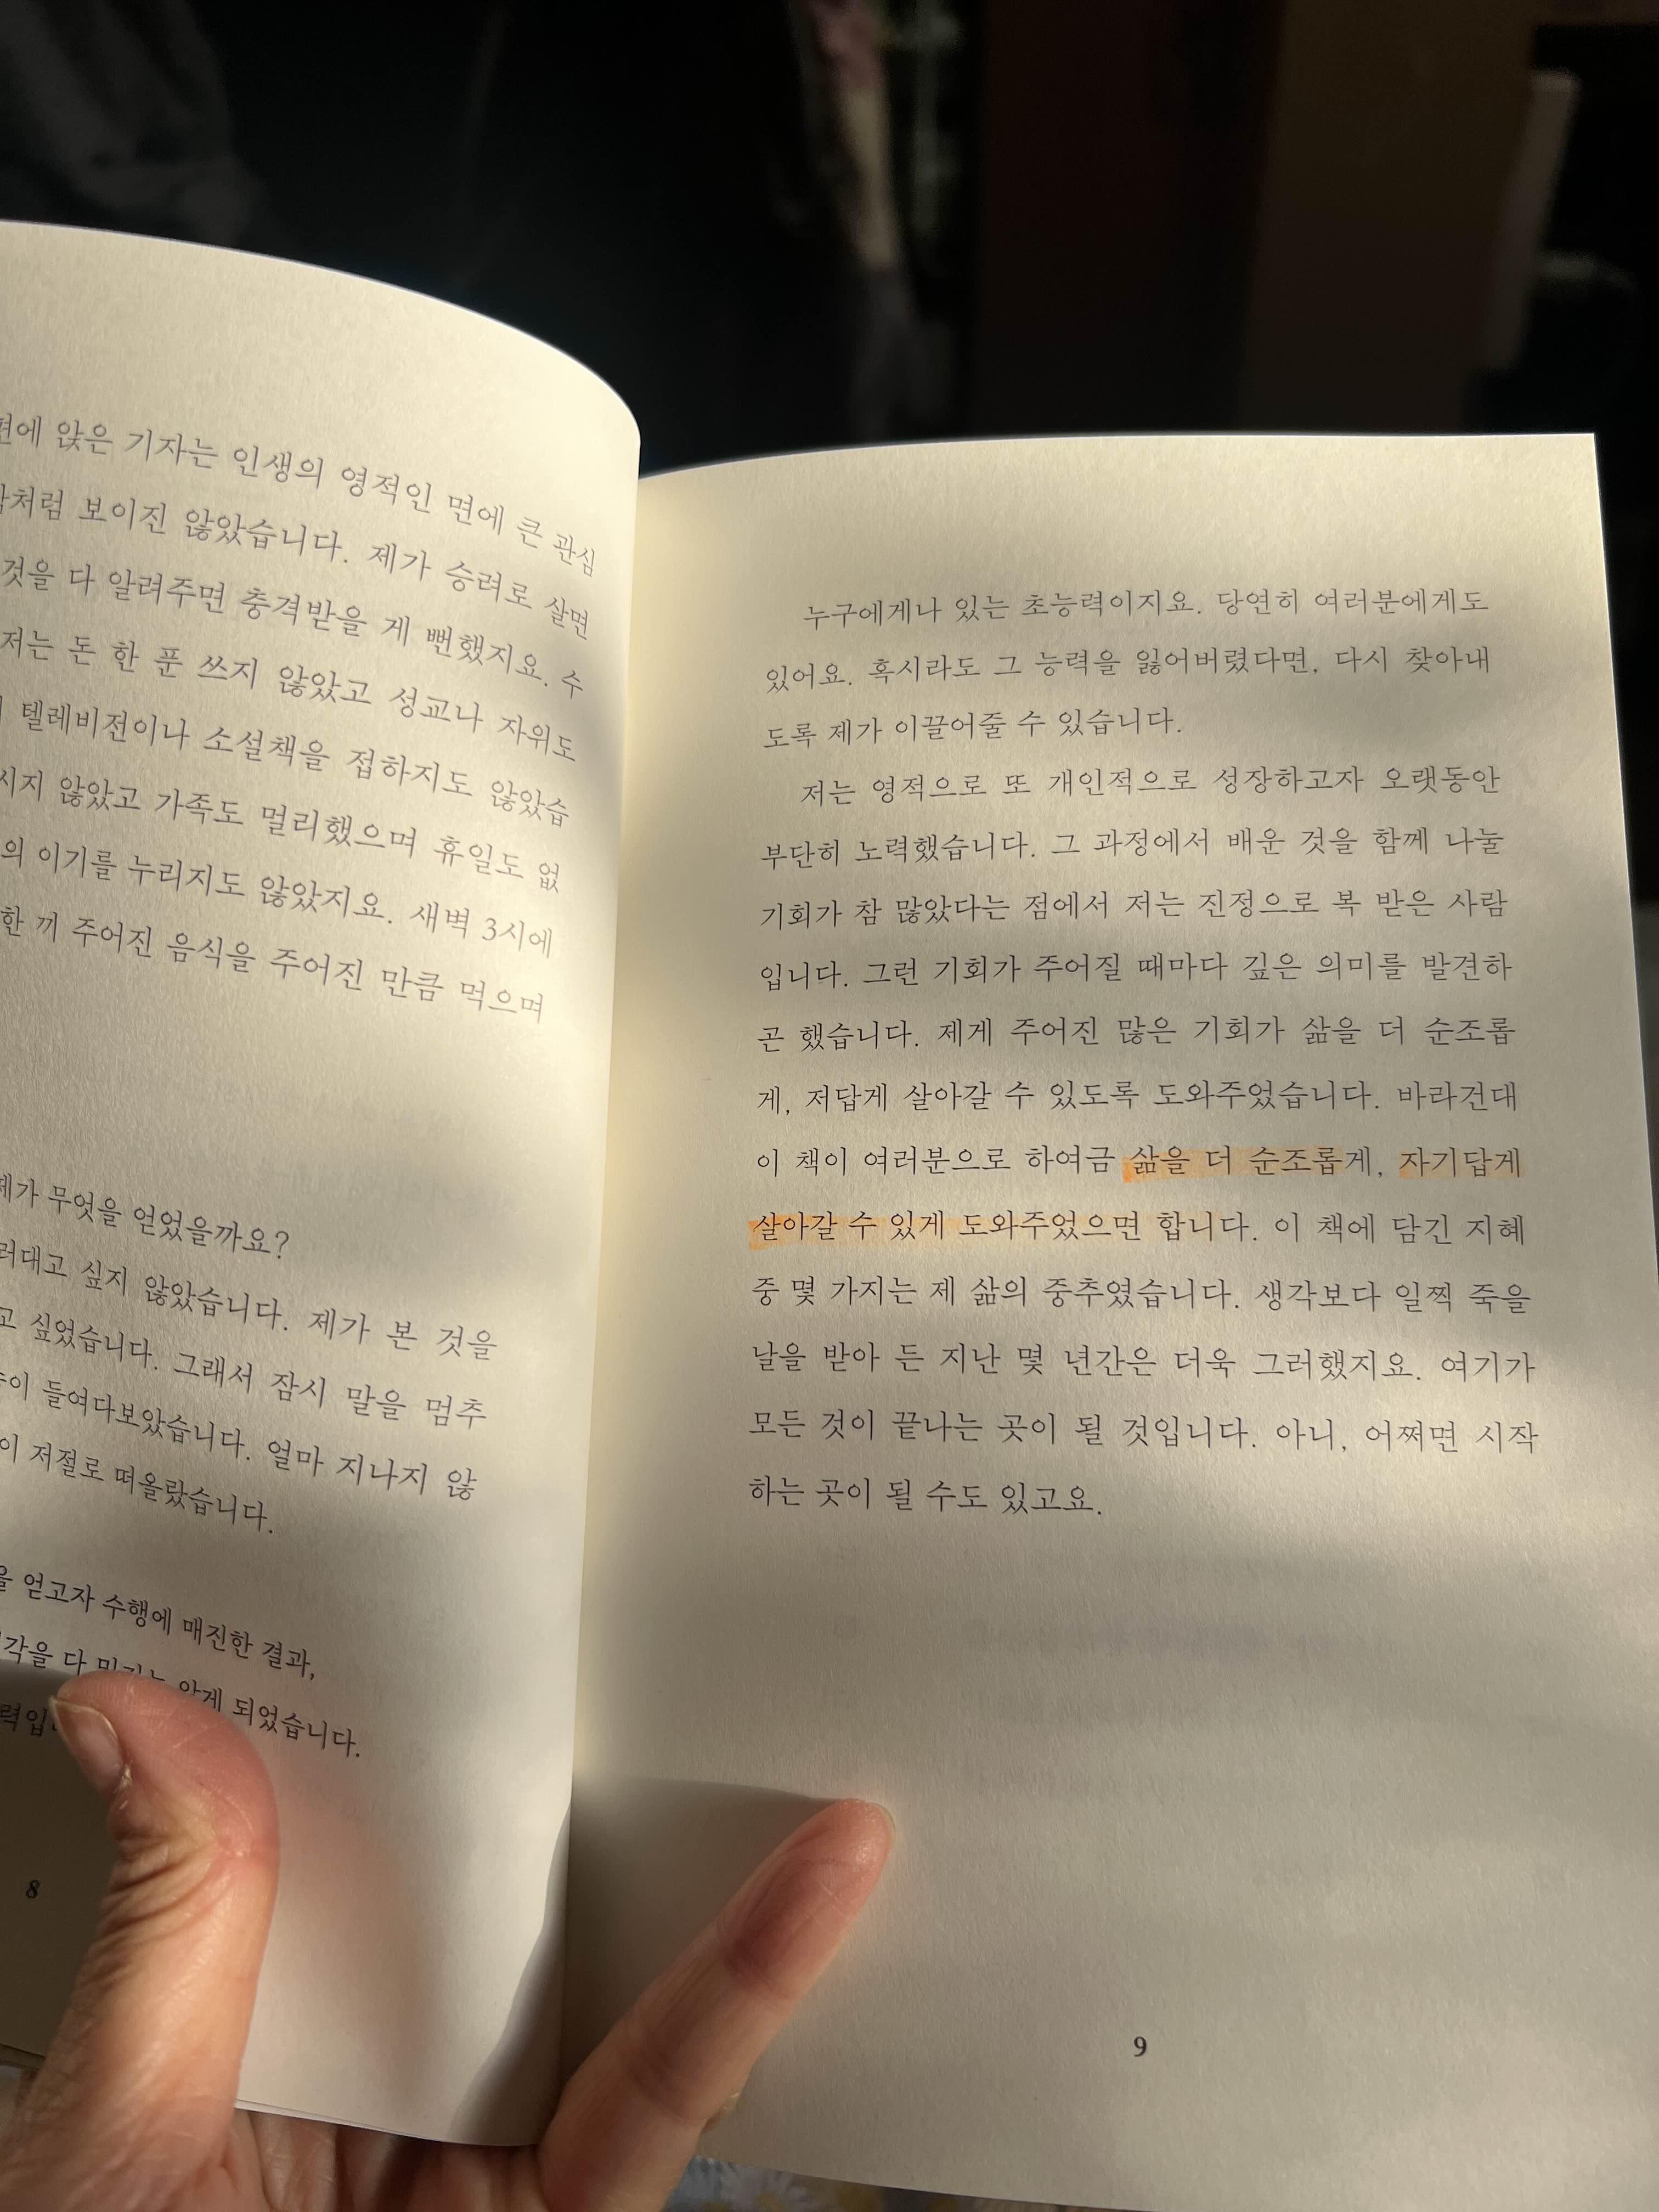 앉은 기자는 인생의 영적인 면에 큰 관심
보이진 않았습니다. 제가 승려로 살면
것을 다 알려주면 충격받을 게 뻔했지요. 수
저는 돈 한 푼 쓰지 않았고 성교나 자위도
텔레비전이나 소설책을 접하지도 않았습
않았고 가족도 멀리했으며 휴일도 없
의 이기를 누리지도 않았지요. 새벽 3시에
한 끼 주어진 음식을 주어진 만큼 먹으며
제가 무엇을 얻었을까요?
싶지 않았습니다. 제가 본 것을
싶었습니다. 그래서 잠시 말을 멈추
들여다보았습니다. 얼마 지나지 않
저절로 떠올랐습니다.
을 얻고자 수행에 매진한 결과,
다 않게 되었습니다.
8
누구에게나 있는 초능력이지요. 당연히 여러분에게도
있어요. 혹시라도 그 능력을 잃어버렸다면, 다시 찾아내
도록 제가 이끌어줄 수 있습니다.
저는 영적으로 또 개인적으로 성장하고자 오랫동안
부단히 노력했습니다. 그 과정에서 배운 것을 함께 나눌
기회가 참 많았다는 점에서 저는 진정으로 복 받은 사람
입니다. 그런 기회가 주어질 때마다 깊은 의미를 발견하
곤 했습니다. 제게 주어진 많은 기회가 삶을 더 순조롭
게, 저답게 살아갈 수 있도록 도와주었습니다. 바라건대
이 책이 여러분으로 하여금 삶을 더 순조롭게, 자기답게
살아갈 수 있게 도와주었으면 합니다. 이 책에 담긴 지혜
중 몇 가지는 제 삶의 중추였습니다. 생각보다 일찍 죽을
날을 받아 든 지난 몇 년간은 더욱 그러했지요. 여기가
모든 것이 끝나는 곳이 될 것입니다. 아니, 어쩌면 시작
하는 곳이 될 수도 있고요.
9